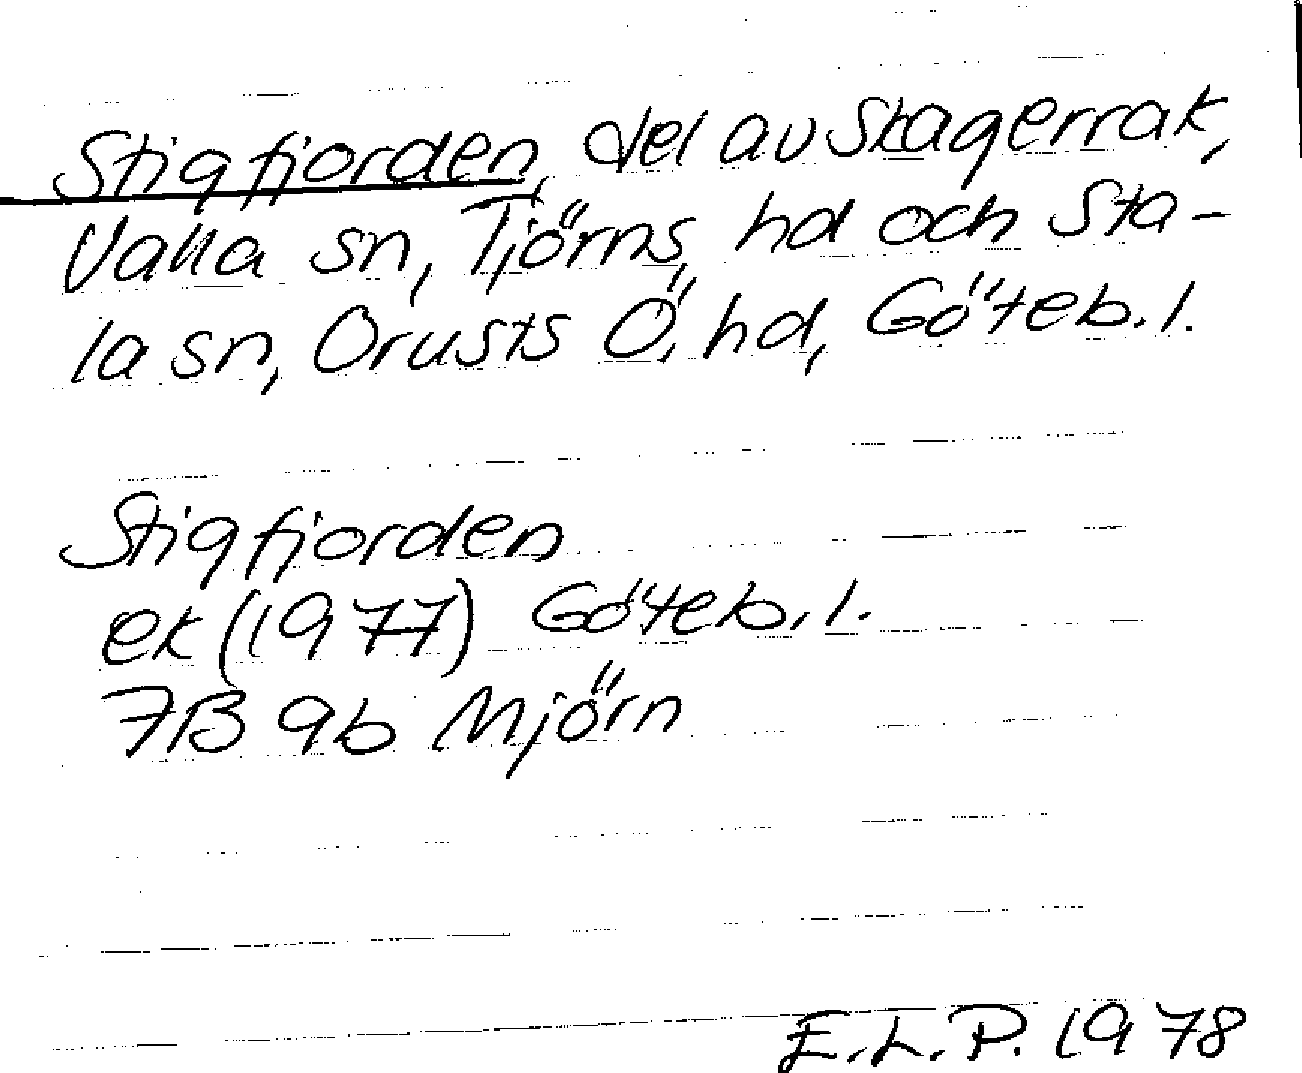 Stigfjorden, del av Skagerrak,
Valla sn, Tjörns hd och Sta-
la sn, Orusts Ö, hd, Göteb. l.
Stigfjorden
ek (1977) Göteb. l.
7B 9b Mjörn
E.L.P. 1978